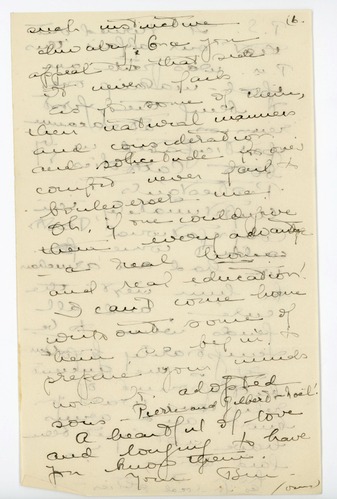 16.
such instinctive
chivalry. Once you
appeal to that side
it never fails
As for some of them,
their natural manners
and consideration
and solicitude for one's
comfort never fail to
bouleverser me!
Oh, if one could give
them every advantage
a real home
and real education.
I can't come home
without some of
them
prepare your minds
now for adopted
sons - Pierre and Gilbert - Noël!
A heartful of love
and longing to have
you know them.
Your
(over)